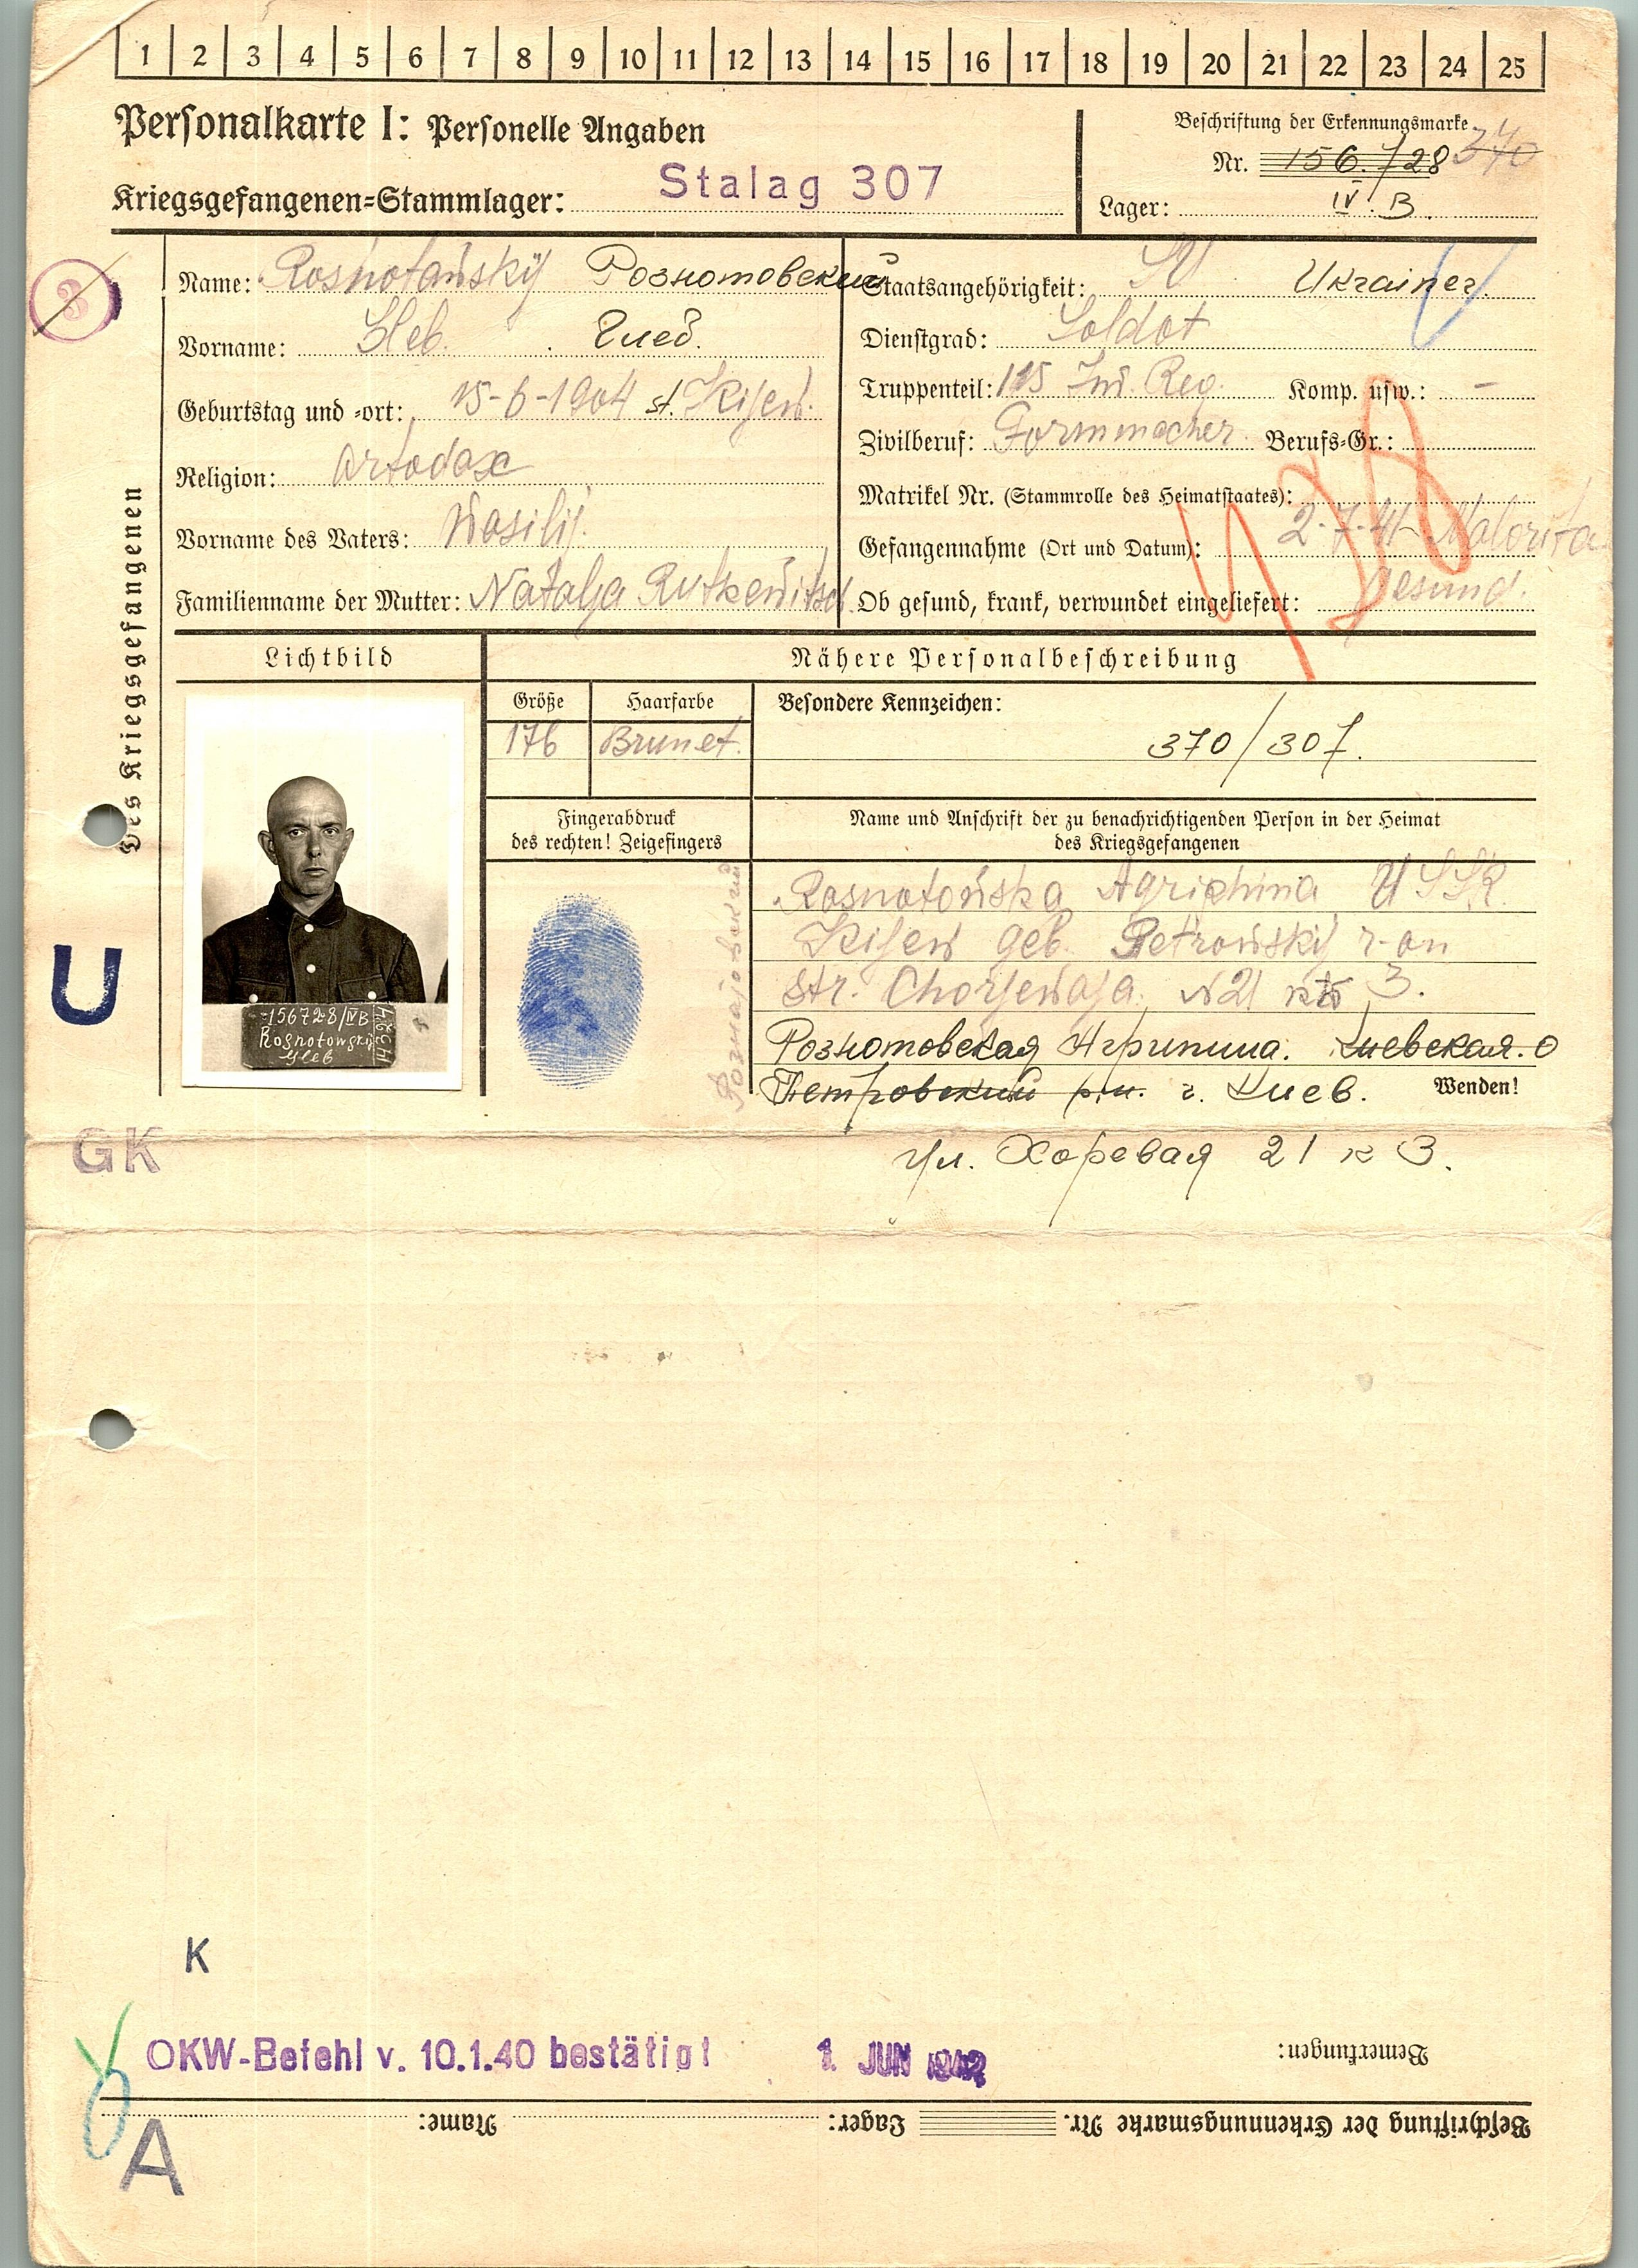 1 2 3 4 5 6 7 8 9 10 11 12 13 14 15 16 17 18 19 20 21 22 23 24 25
Personalkarte I: Personelle Angaben
Beschriftung der Erkennungsmarke
Nr. 156728 370
Kriegsgefangenen-Stammlager: Stalag 307
Lager: IV B.
3
Des Kriegsgefangenen
Name: Rosnotowskij Розготовский
Vorname: Gleb. Глеб.
Geburtstag und -ort: 15-6-1904 st. Kijew.
Religion: Ortodox
Vorname des Vaters: Wasilij.
Familienname der Mutter: Natalja Rutkewitsch
Staatsangehörigkeit: SU Ukrainer.
Dienstgrad: Soldat
Truppenteil: 115 Inf. Reg. Komp. usw.: -
Zivilberuf: Formmacher Berufs-Gr.:
Matrikel Nr. (Stammrolle des Heimatstaates):
Gefangennahme (Ort und Datum): 2-7-41 Malorita
Ob gesund, krank, verwundet eingeliefert: Gesund.
Lichtbild
Nähere Personalbeschreibung
Größe
Haarfarbe
Besondere Kennzeichen:
176
Brunet.
370/307.
-156728/IVB
Rosnotowskij
Gleb
Fingerabdruck
des rechten! Zeigefingers
Name und Anschrift der zu benachrichtigenden Person in der Heimat
des Kriegsgefangenen
Rosnotowska Agriphina USSR.
Kijew geb. Petrowskij r-on
str. Chorjewaja. N21 3.
Розготовская Агрипина. Киевская. О
Петровский р.н. г. Киев.
Wenden!
ул. Хоревая 21 к 3.
U
GK
K
OKW-Befehl v. 10.1.40 bestätigt 1. JUN 1942
Bemerkungen:
Beschriftung der Erkennungsmarke Nr. Lager: Name:
A